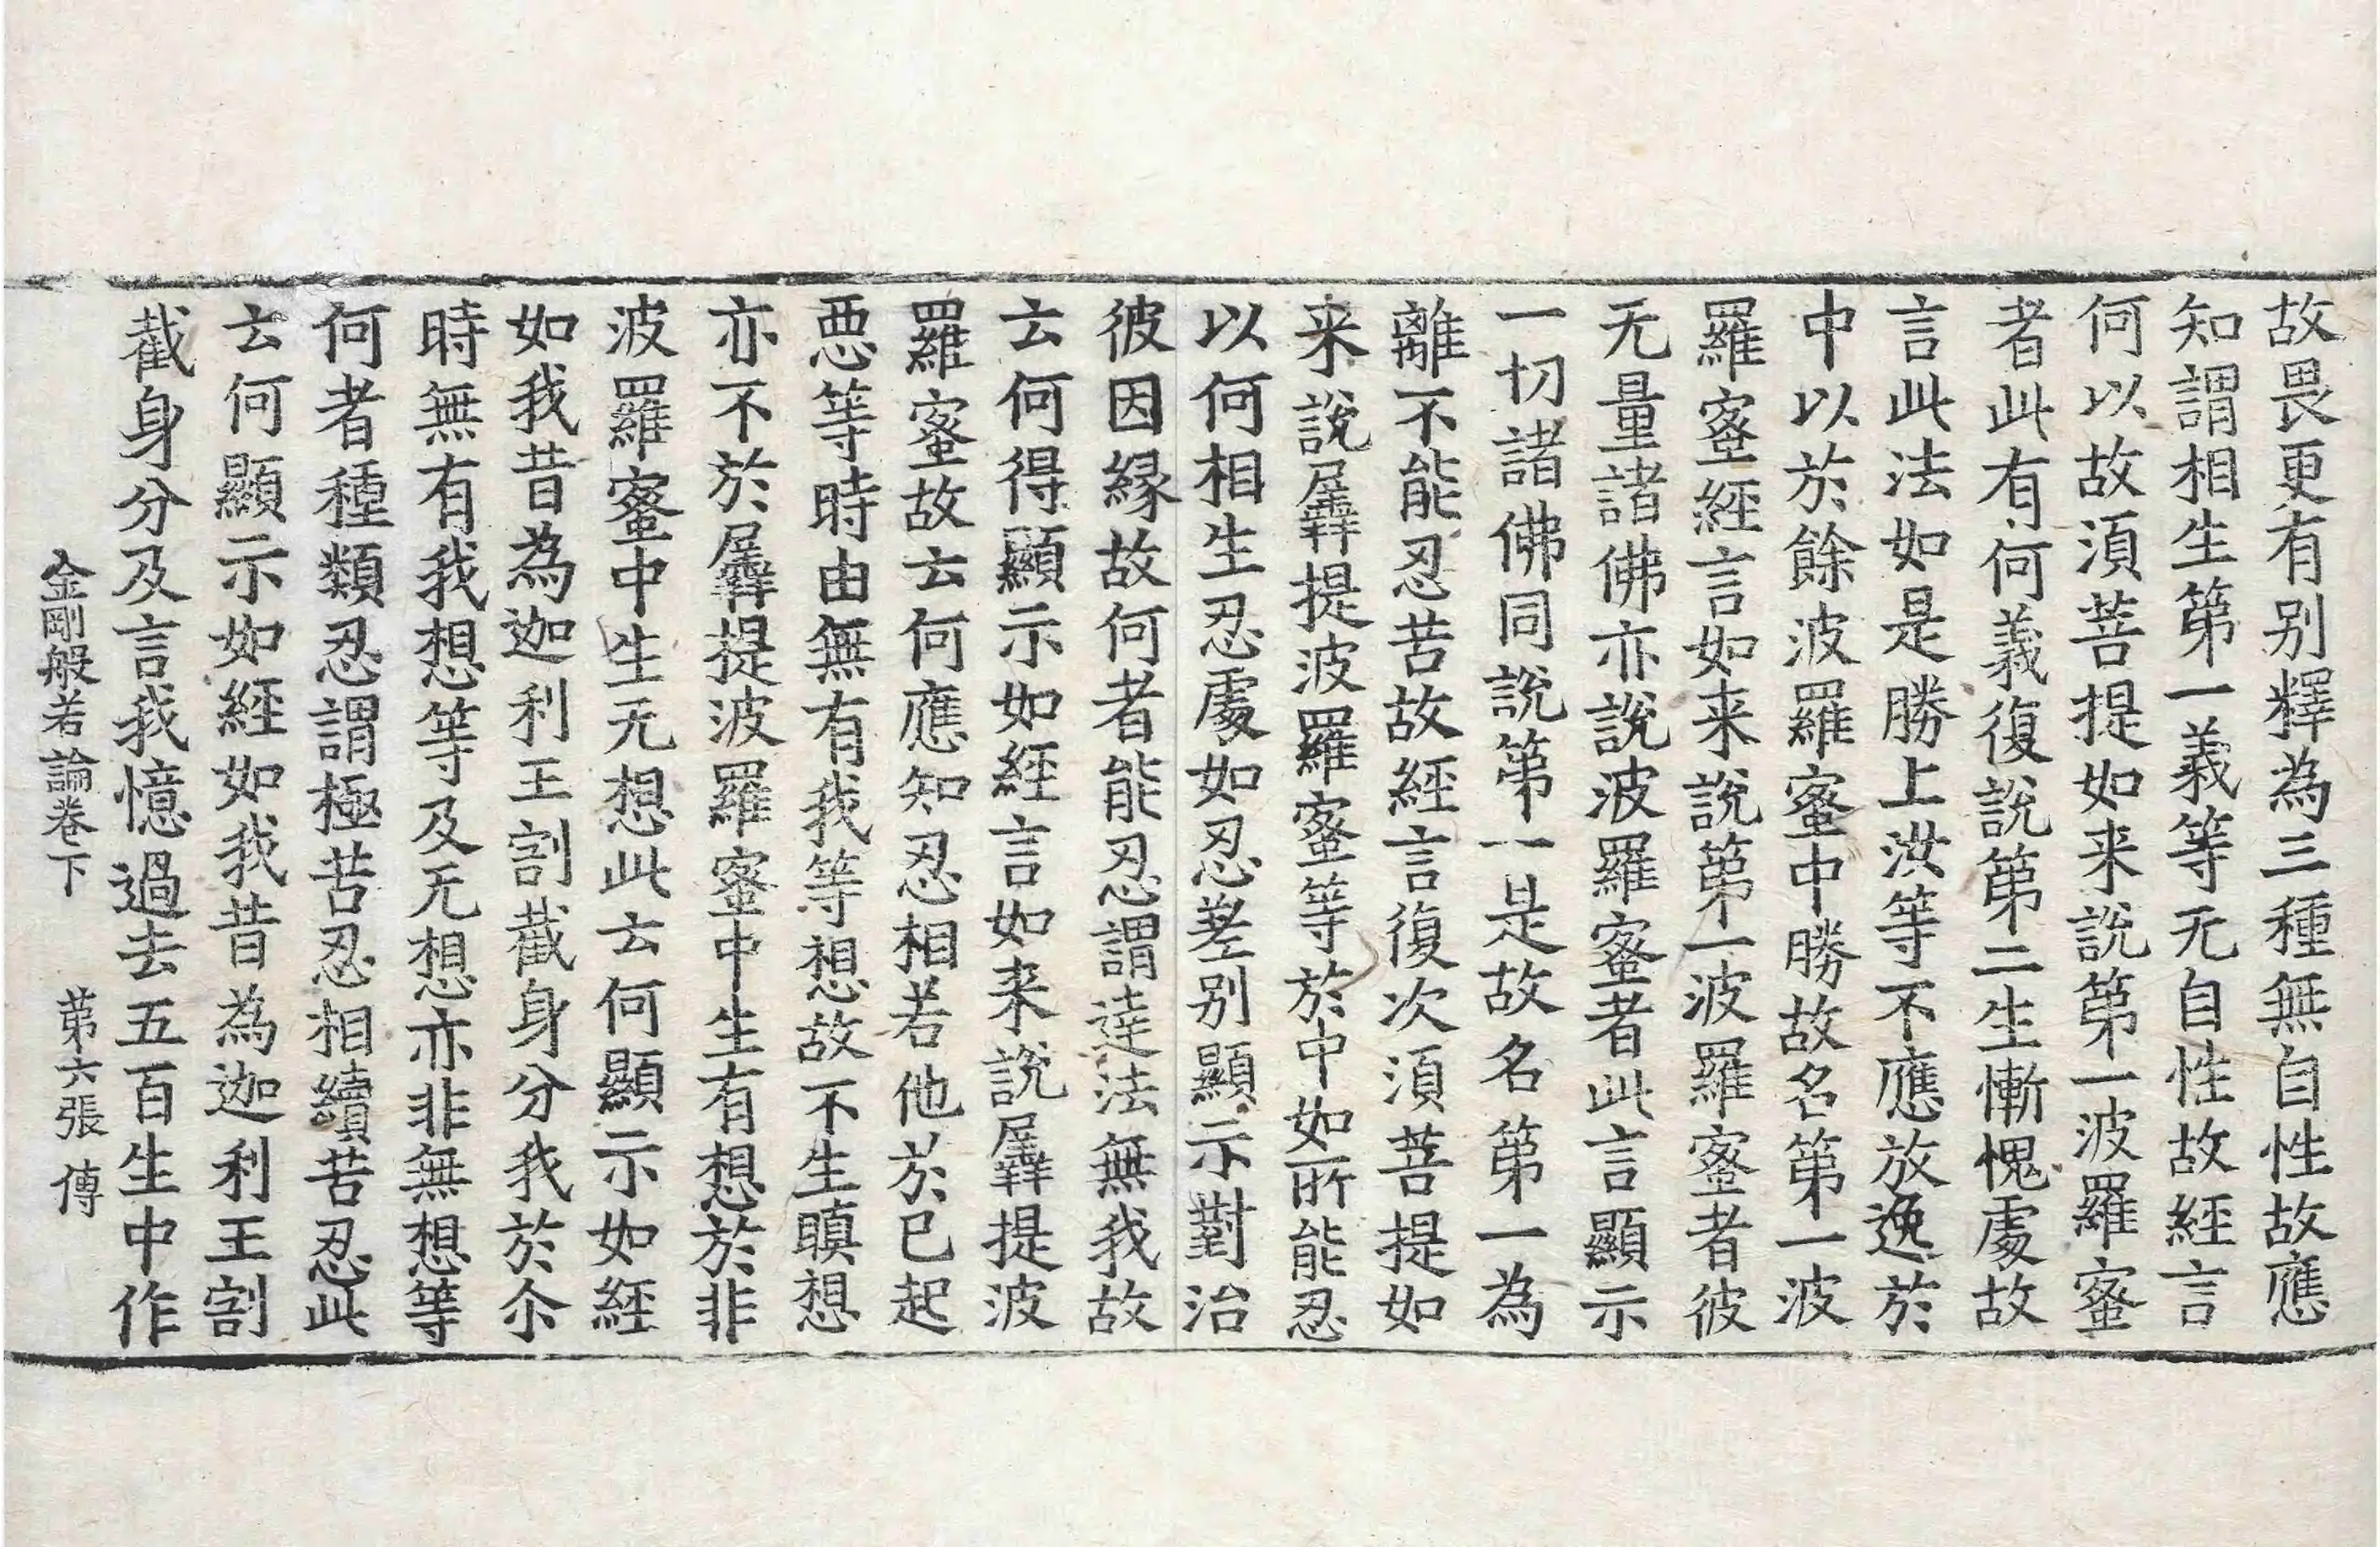 故畏更有别釋為三種無自性故應
知謂相生第一義等无自性故經言
何以故湏菩提如来說第一波羅蜜
者此有何義復說第二生慚愧處故
言此法如是勝上洪等不應放逸於
中以於餘波羅蜜中勝故名第一波
羅蜜經言如来說第一波羅蜜者彼
无量諸佛亦說波羅蜜者此言顯示
一切諸佛同說第一是故名第一為
離不能忍苦故經言復次湏菩提如
来說羼提波羅蜜等於中如所能忍
以何相生忍處如忍差别顯示對治
彼因緣故何者能忍謂達法無我故
云何得顯示如經言如来說羼提波
羅蜜故云何應知忍相若他於已起
惡等時由無有我等想故不生瞋想
亦不於羼提波羅蜜中生有想於非
波羅蜜中生无想此云何顯示如經
如我昔為迦利王割截身分我於尒
時無有我想等及无想亦非無想等
何者種類忍謂極苦忍相續苦忍此
云何顯示如經如我昔為迦利王割
截身分及言我憶過去五百生中作
金剛般若論卷下　第六張　傳